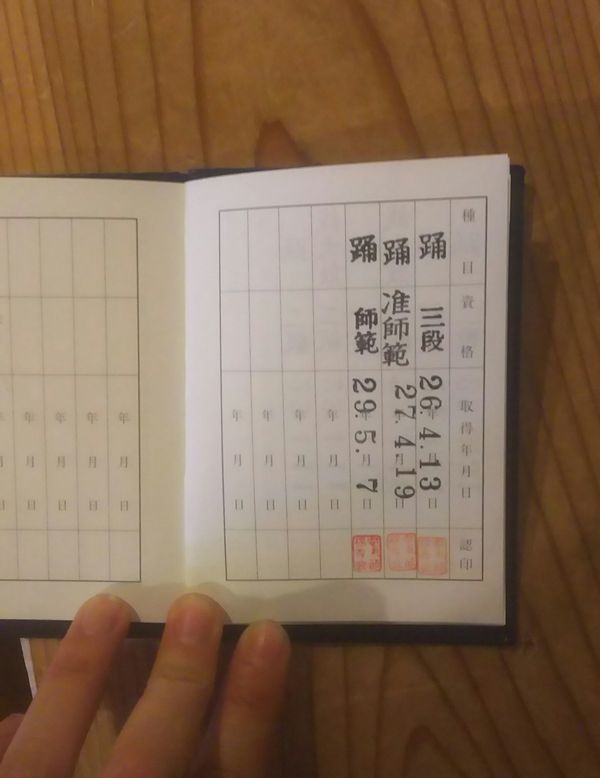 種目 資格 取得年月日 認印
踊 三段 26.4.13 年月日
踊 准師範 27.4.19 年月日
踊 師範 29.5.7 年月日
年 月 日
年 月 日
年 月 日
年 月 日
年 月 日
年 月 日
年 月 日
年 月 日
年 月 日